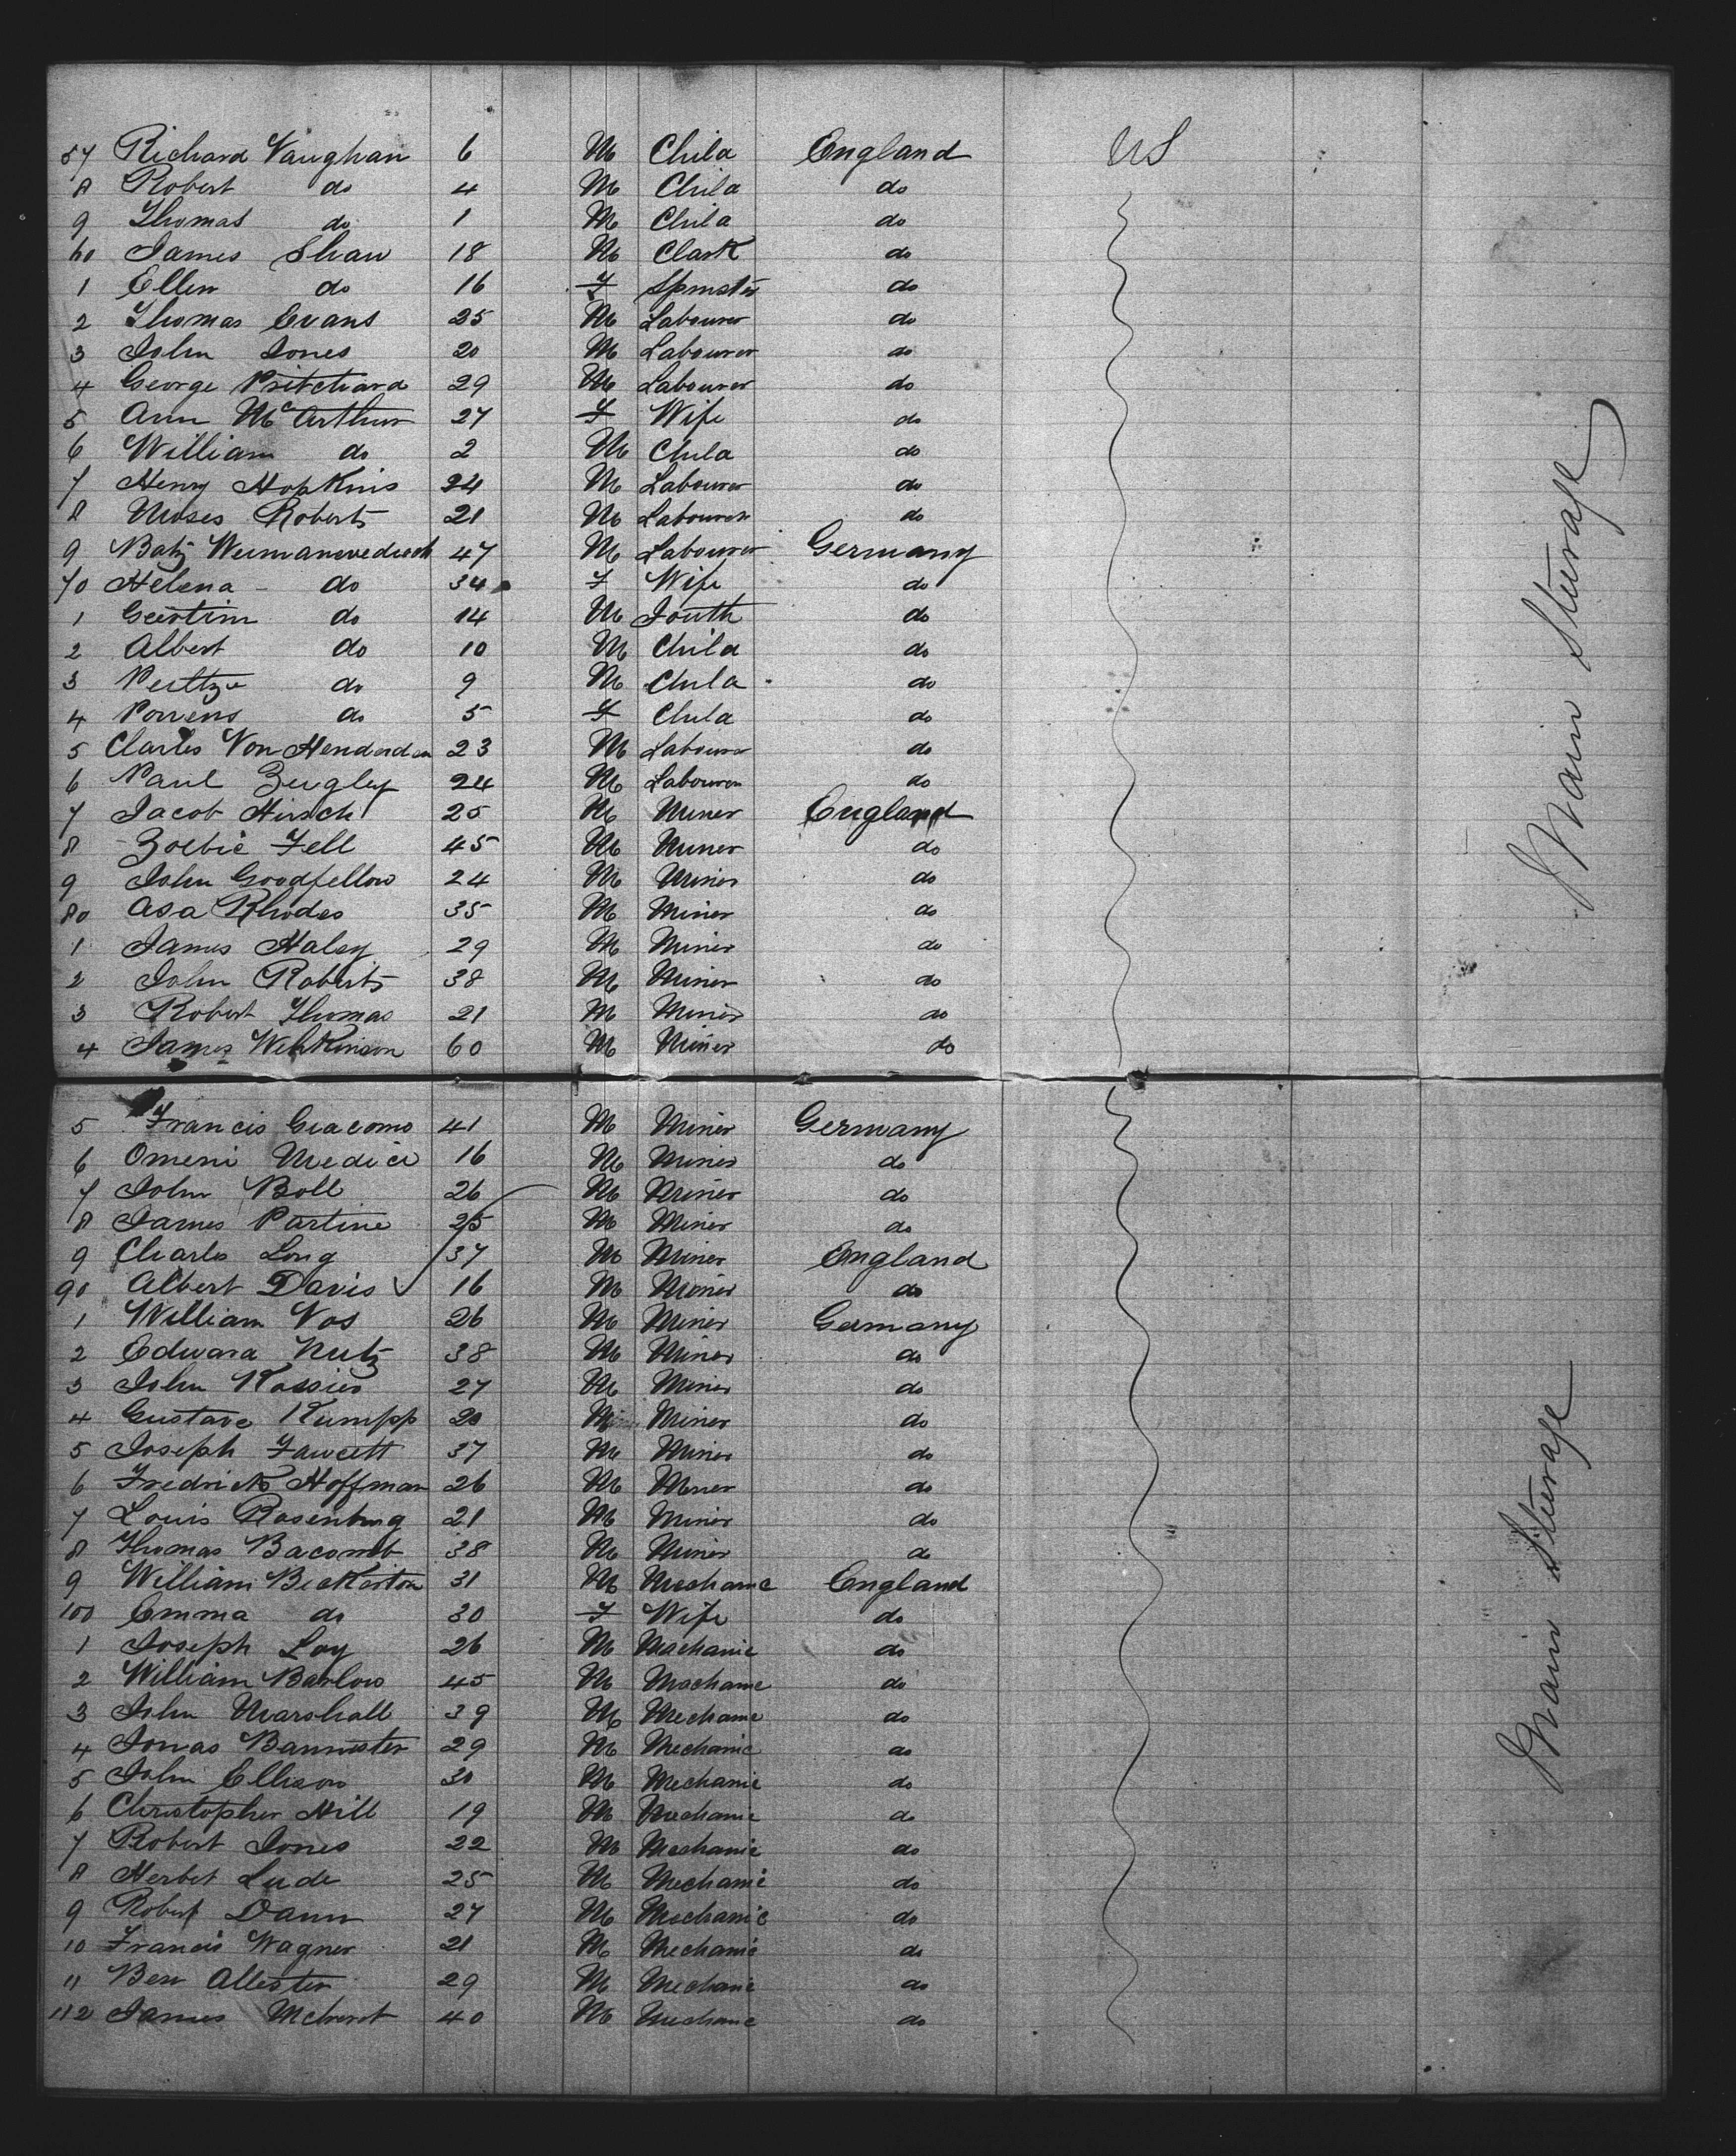 57 Richard Vaughan 6 M Child England US
8 Robert do 4 M Child do
9 Thomas do 1 M Child do
60 James Shaw 18 M Clark do
1 Ellen do 16 F Spinster do
2 Thomas Evans 25 M Labourer do
3 John Jones 20 M Labourer do
4 George Pritchard 29 M Labourer do
5 Ann McArthur 27 F Wife do
6 William do 2 M Child do
7 Henry Hopkins 24 M Labourer do
8 Moses Roberts 21 M Labourer do
9 Batz 47 M Labourer Germany
70 Helena - do 34 F Wife do
1 do 14 M Youth do
2 Albert do 10 M Child do
3 do 9 M Child do
4 do 5 F Child do
5 Charles Von Henderdon 23 M Labourer do
6 Paul Zeugley 24 M Labourer do
7 Jacob Hirsch 25 M Miner England
8 Zoebie Fell 45 M Miner do
9 John Goodfellow 24 M Miner do
80 Asa Rhodes 35 M Miner do
1 James Haley 29 M Miner do
2 John Roberts 38 M Miner do
3 Robert Thomas 21 M Miner do
4 James Wilkinson 60 M Miner do
Main Steerage
5 Francis Giacomo 41 M Miner Germany
6 Omeni Medici 16 M Miner do
7 John Boll 26 M Miner do
8 James Partine 25 M Miner do
9 Charles Long 37 M Miner England
90 Albert Davis 16 M Miner do
1 William Vos 26 M Miner Germany
2 Edward Nutz 38 M Miner do
3 John Kassier 27 M Miner do
4 Gustave Kumpp 20 M Miner do
5 Joseph Fawcett 37 M Miner do
6 Fredrick Hoffman 26 M Miner do
7 Louis Rosenburg 21 M Miner do
8 Thomas Bacomb 38 M Miner do
9 William Beckerton 31 M Mechanic England
100 Emma do 30 F Wife do
1 Joseph Loy 26 M Mechanic do
2 William Barlow 45 M Mechanic do
3 John Marshall 39 M Mechanic do
4 Jonas Bannister 29 M Mechanic do
5 John Ellison 30 M Mechanic do
6 Christopher Hill 19 M Mechanic do
7 Robert Jones 22 M Mechanic do
8 Herbet Lude 25 M Mechanic do
9 Robert Dann 27 M Mechanic do
10 Francis Wagner 21 M Mechanic do
11 Ben Allester 29 M Mechanic do
112 James 40 M Mechanic do
Main Steerage